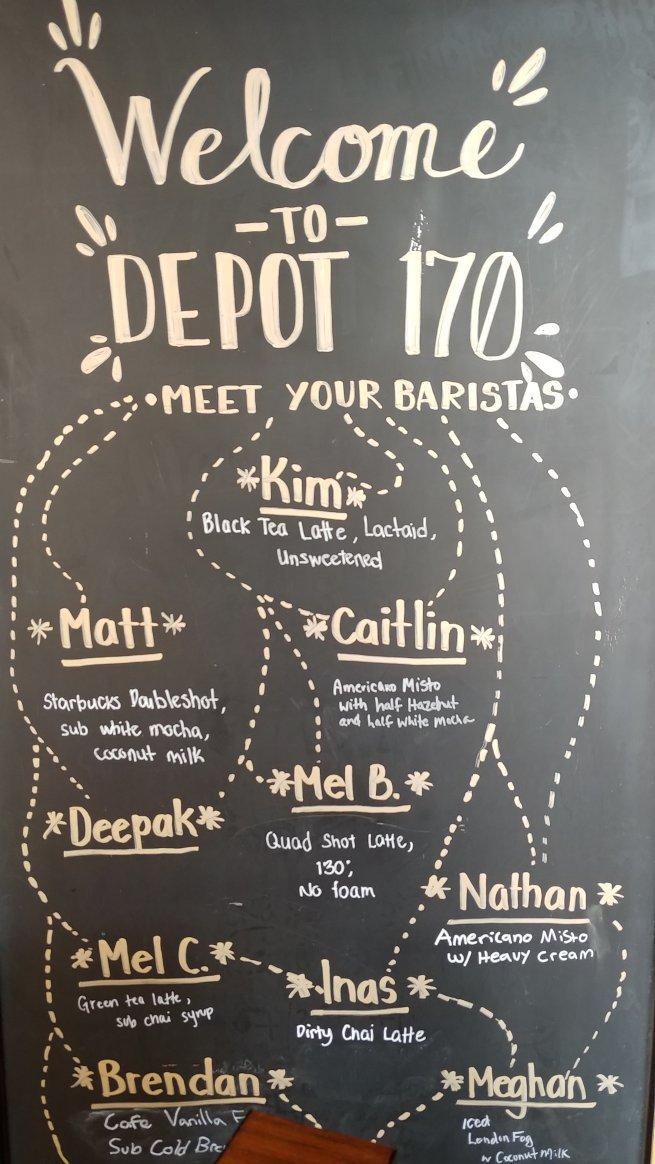 Welcome
-TO-
DEPOT 170
•MEET YOUR BARISTAS•
*Kim*
Black Tea Latte, Lactaid,
Unsweetened
*Matt*
Starbucks Doubleshot,
sub white mocha,
coconut milk
*Caitlin*
Americano Misto
with half Hazelnut
and half white mocha
*Mel B.*
Quad Shot Latte,
130°,
No foam
*Deepak*
*Nathan*
Americano Misto
w/ Heavy cream
*Mel C.*
Green tea latte,
sub chai syrup
*Inas*
Dirty Chai Latte
*Brendan*
Cafe Vanilla
Sub Cold
*Meghan*
Iced
London Fog
w Coconut Milk